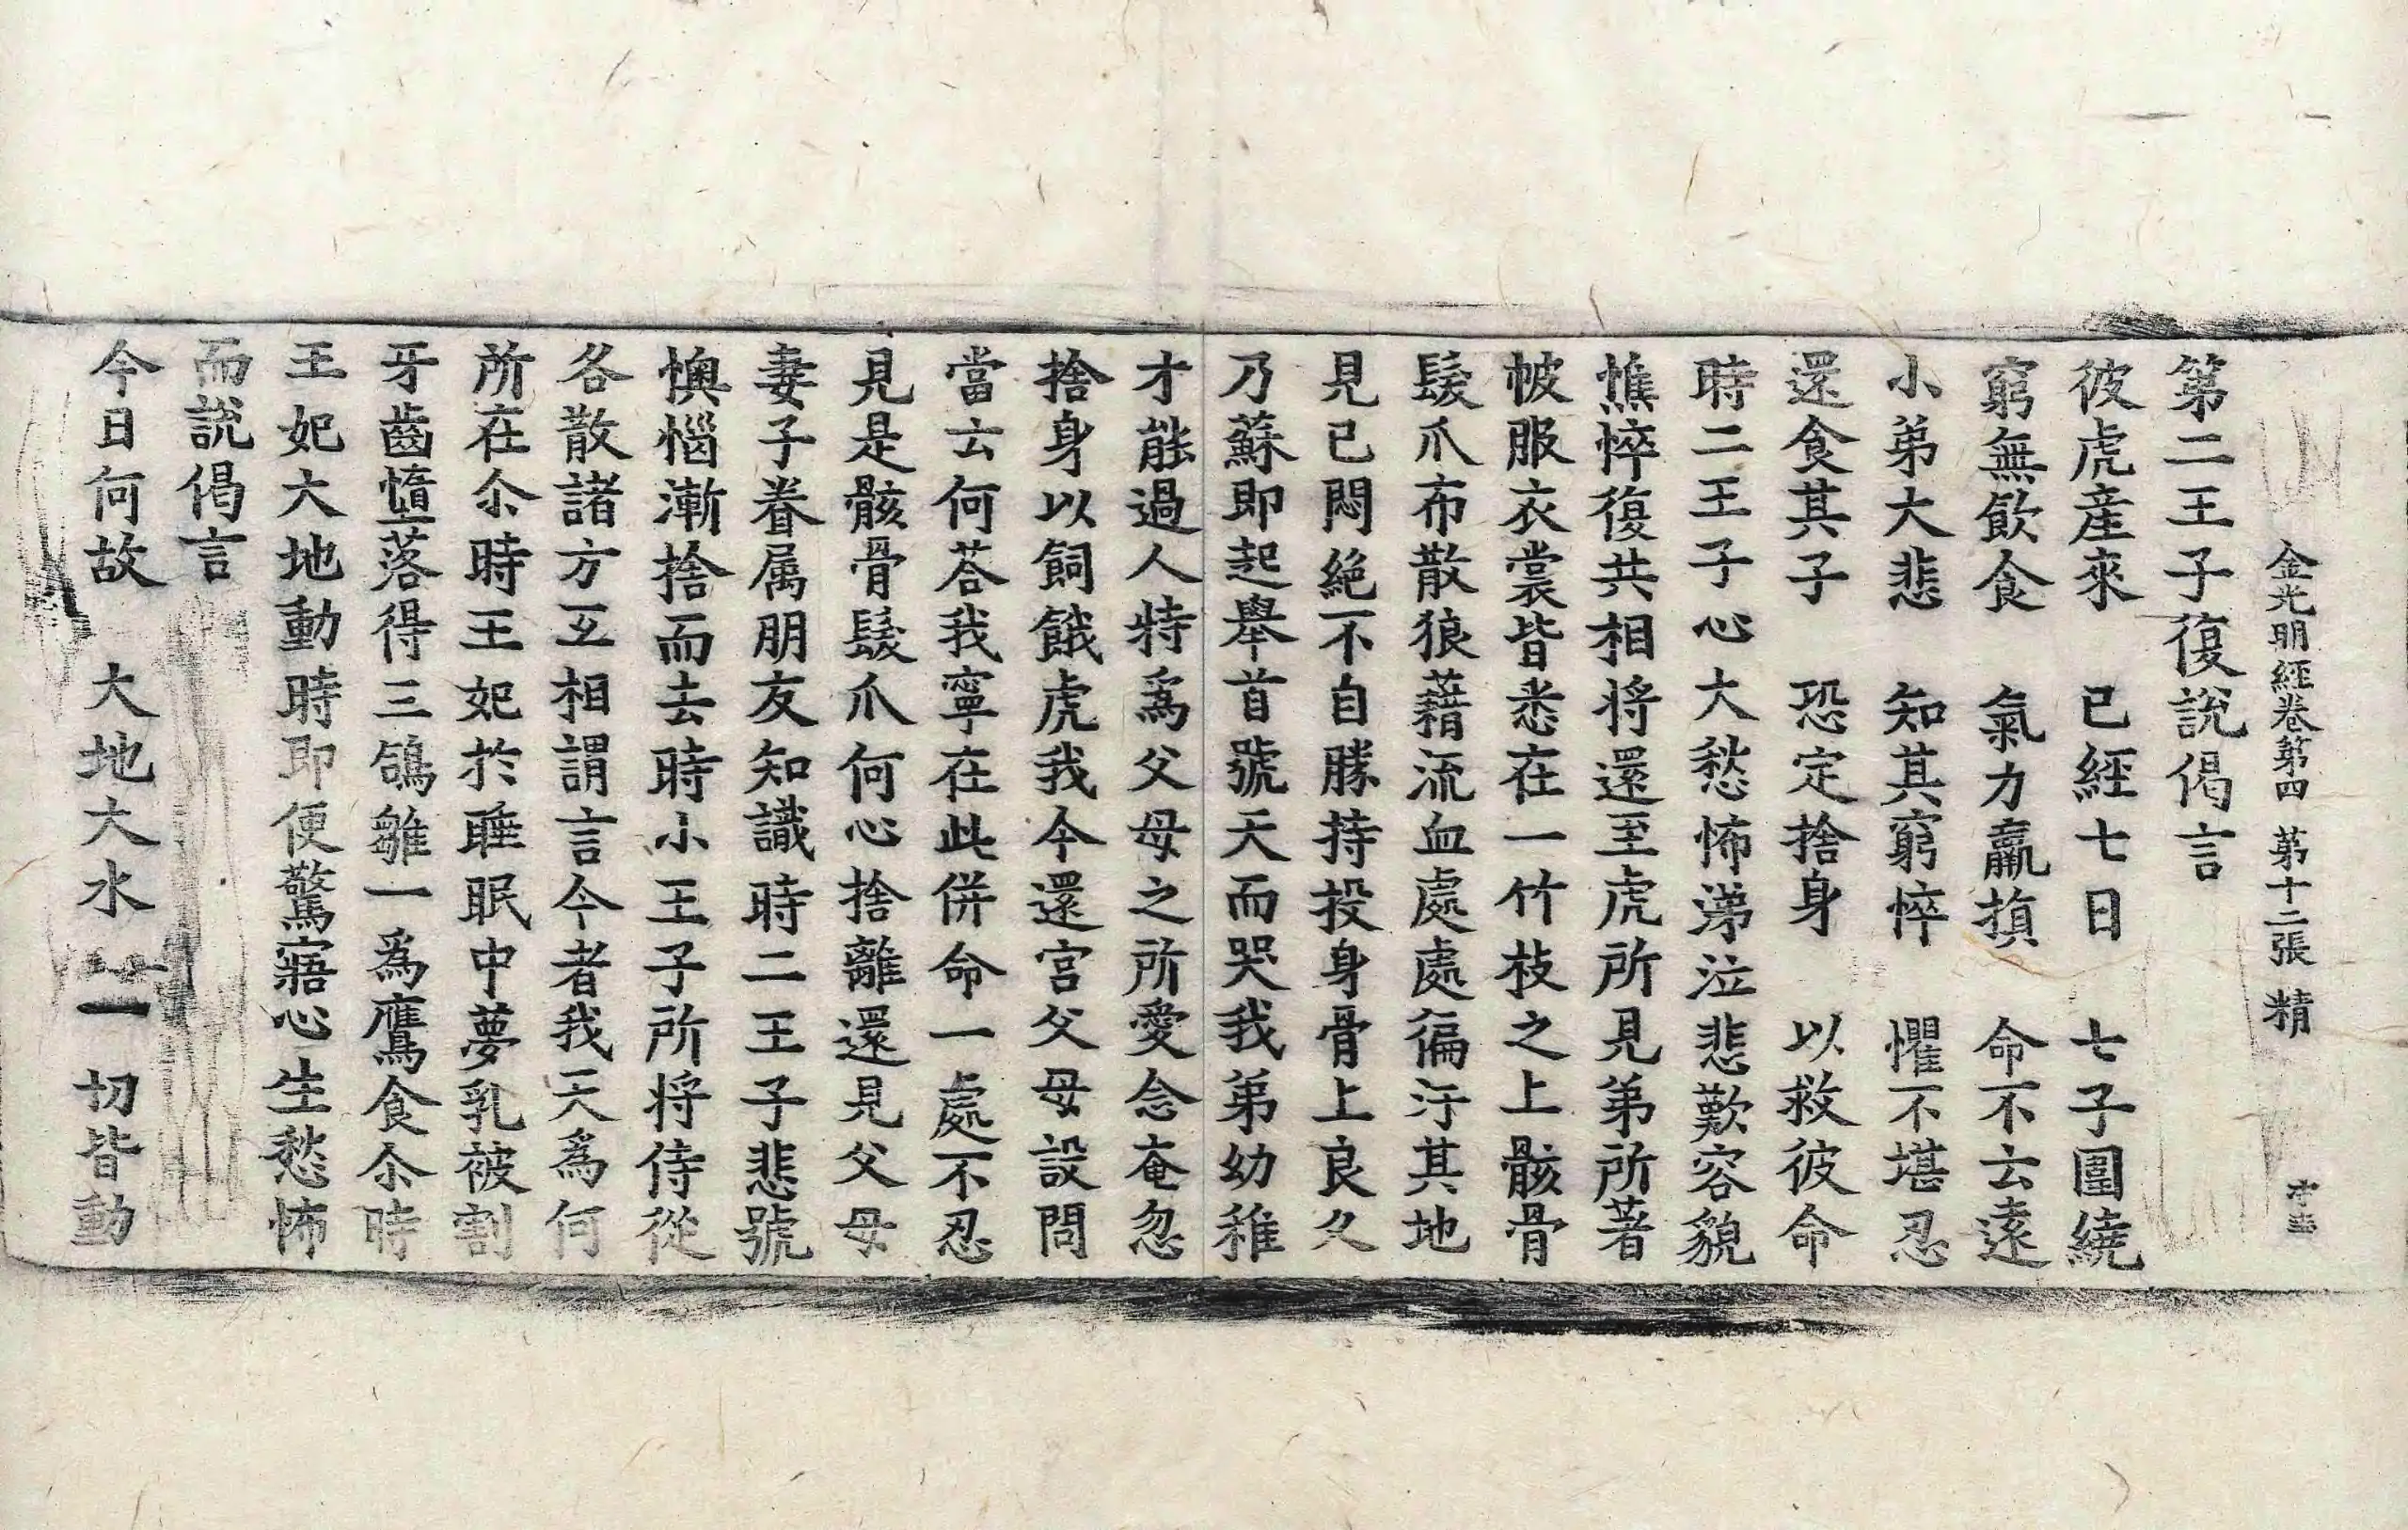 金光明經卷第四 第十二張 精
第二王子復說偈言
彼虎産來 已經七日 七子圍繞
窮無飮食 氣力羸損 命不云遠
小弟大悲 知其窮悴 懼不堪忍
還食其子 恐定捨身 以救彼命
時二王子心大愁怖涕泣悲歎容貌
憔悴復共相將還至虎所見弟所著
帔服衣裳皆悉在一竹枝之上骸骨
髮爪布散狼藉流血處處徧汙其地
見已悶絕不自勝持投身骨上良久
乃蘇即起舉首號天而哭我弟幼稚
才能過人特爲父母之所愛念奄忽
捨身以飼餓虎我今還宮父母設問
當云何荅我寧在此併命一處不忍
見是骸骨髮爪何心捨離還見父母
妻子眷属朋友知識時二王子悲號
懊惱漸捨而去時小王子所將侍從
各散諸方互相謂言今者我天爲何
所在尒時王妃於睡眠中夢乳被割
牙齒墮落得三鴿雛一爲鷹食尒時
王妃大地動時即便驚寤心生愁怖
而說偈言
今日何故 大地大水 一切皆動